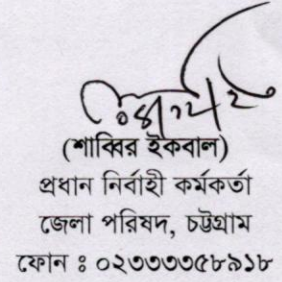 (শাব্বির ইকবাল)
প্রধান নির্বাহী কর্মকর্তা
জেলা পরিষদ, চট্টগ্রাম
ফোন ঃ ০২৩৩৩৩৫৮৯১৮